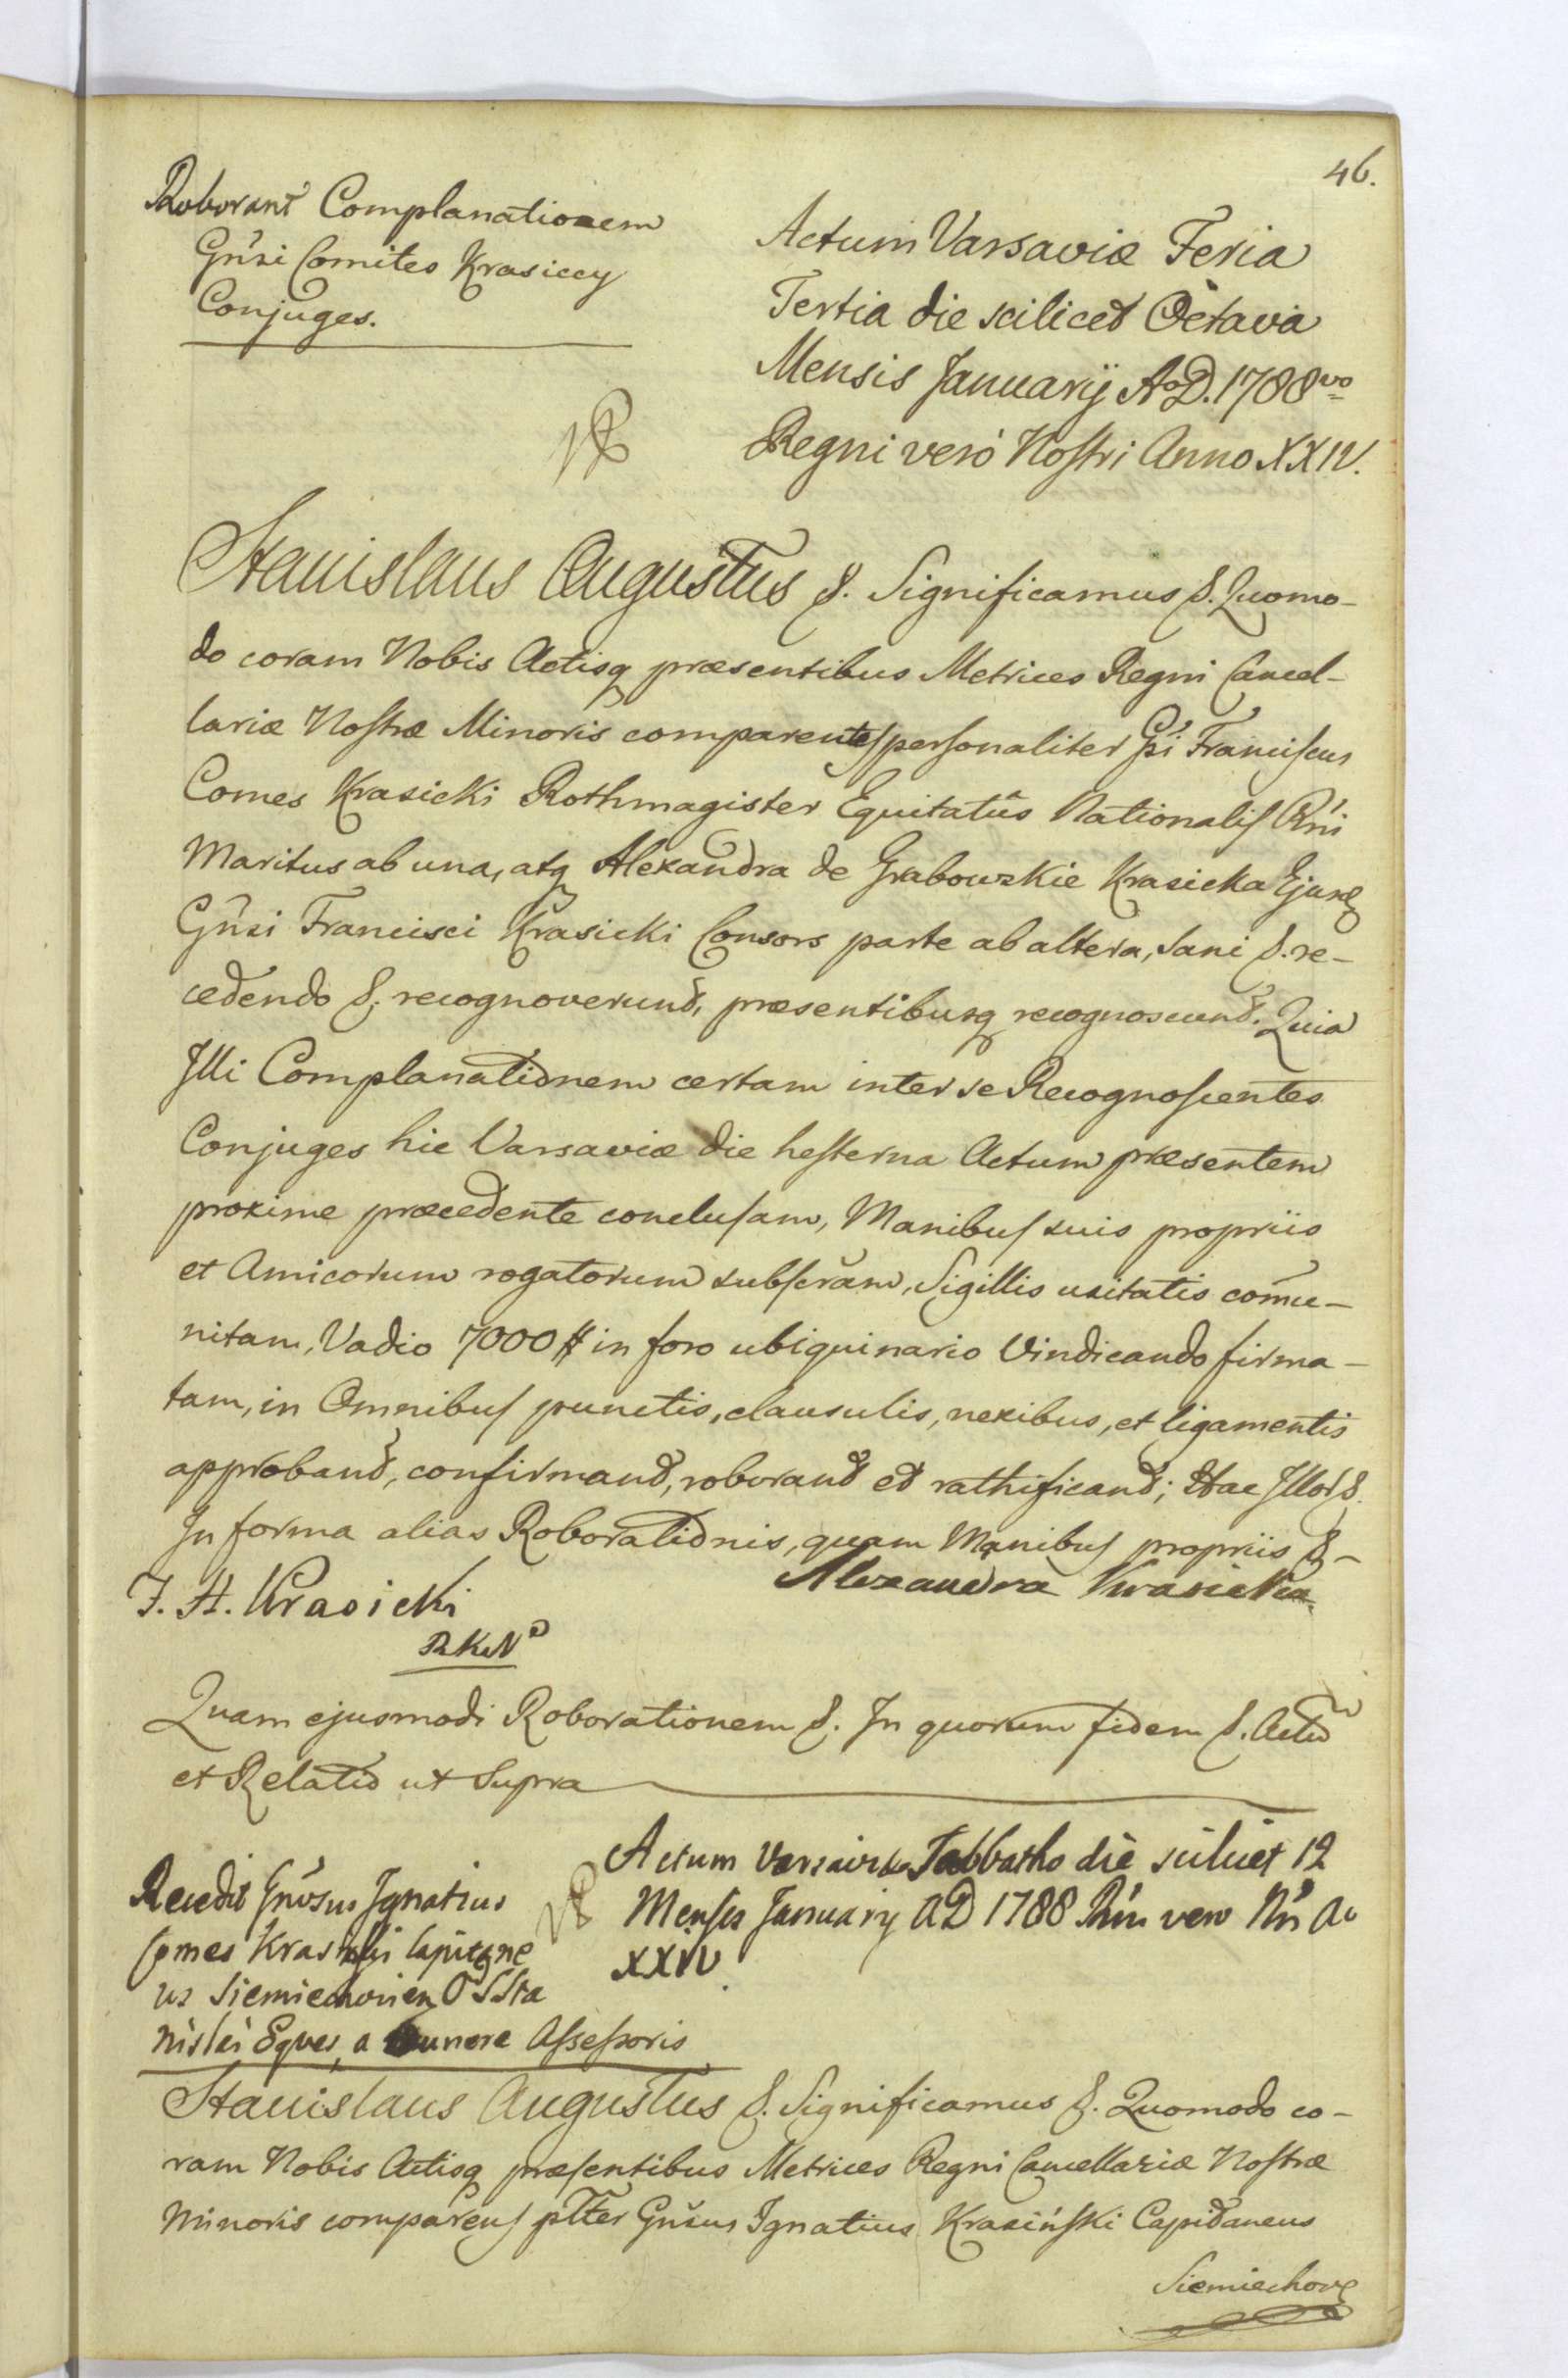 46.
Roborant Complanationem
Gnsi Comites Krasiccy
Conjuges.
Actum Varsaviæ Feria
Tertia die scilicet Octava
Mensis Januarij AoD. 1788vo
Regni verò Nostri Anno XXIV.
Stanislaus Augustus &. Significamus &. Quomo-
do coram Nobis Actisq præsentibus Metrices Regni Cancel-
lariæ Nostræ Minoris comparentes personaliter Gsi Franciscus
Comes Krasicki Rothmagister Equitatûs Nationalis Rni
Maritus ab una, atq Alexandra de Grabowskie Krasicka Ejusd
Gnsi Francisci Krasicki Consors parte ab altera, Sani &. re-
cedendo &. recognoverund, præsentibusq recognoscund. Quia
Illi Complanationem certam inter se Recognoscentes
Conjuges hic Varsaviæ die hesterna Actum præsentem
proxime præcedente conclusam, Manibus suis propriis
et Amicorum rogatorum subscram, Sigillis usitatis comu-
nitam, Vadio 7000 # in foro ubiquinario Vindicando firma-
tam, in Omnibus punctis, clausulis, nexibus, et ligamentis
approband, confirmand, roborand et rathificand; Hac Illor &.
In forma alias Roborationis, quam Manibus propriis &-
F. H. Krasicki
RKN
Alexandra Krasicka
Quam ejusmodi Roborationem &. In quorum fidem &. Actu
et Relatio ut Supra
Recedit Gnosus Ignatius
Comes Krasinski Capitane
us Siemiechovien O SSta
nislai Eques, a munere Assessoris
Actum Varsaviæ Sabbatho die scilicet 12
Menses Januarij AD 1788 Rni vero Nri Ao
XXIV
Stanislaus Augustus &. Significamus &. Quomodo co-
ram Nobis Actisq præsentibus Metrices Regni Cancellariæ Nostræ
Minoris comparens pltter Gnsus Ignatius Krasiński Capitaneus
Siemiechov